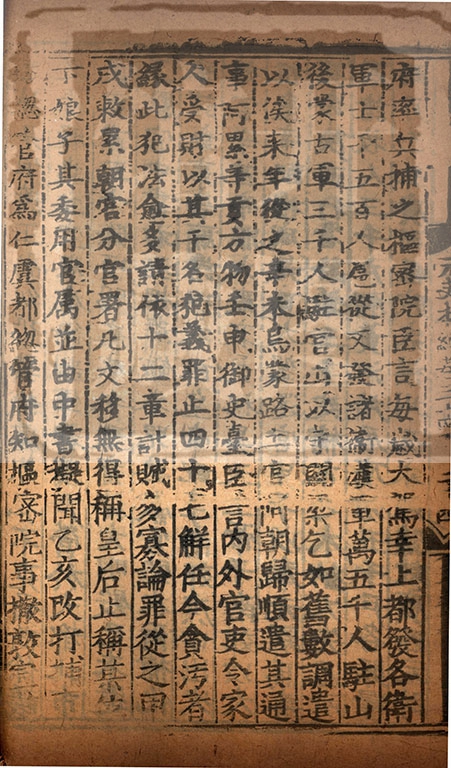 府率兵捕之樞密院臣言每歲大駕幸上都發各衛
軍士千五百人扈從又發諸衛漢軍萬五千人駐山
後蒙古軍三千人駐官山以守關梁乞如舊數調遣
以俟來年從之本烏蒙路土官阿朝歸順遣其通
事阿累等貢方物壬申御史臺臣言內外官吏令家
人受財以其干名犯義罪止四十七解任今貪污者
緣此犯法愈多請依十二章計贓多寡論罪從之甲
戌敕累朝宮分官署凡文移無得稱皇后止稱某位
下娘子其委用官属並由中書擬聞乙亥改打捕
總管府爲仁虞都總管府知樞密院事撒敦